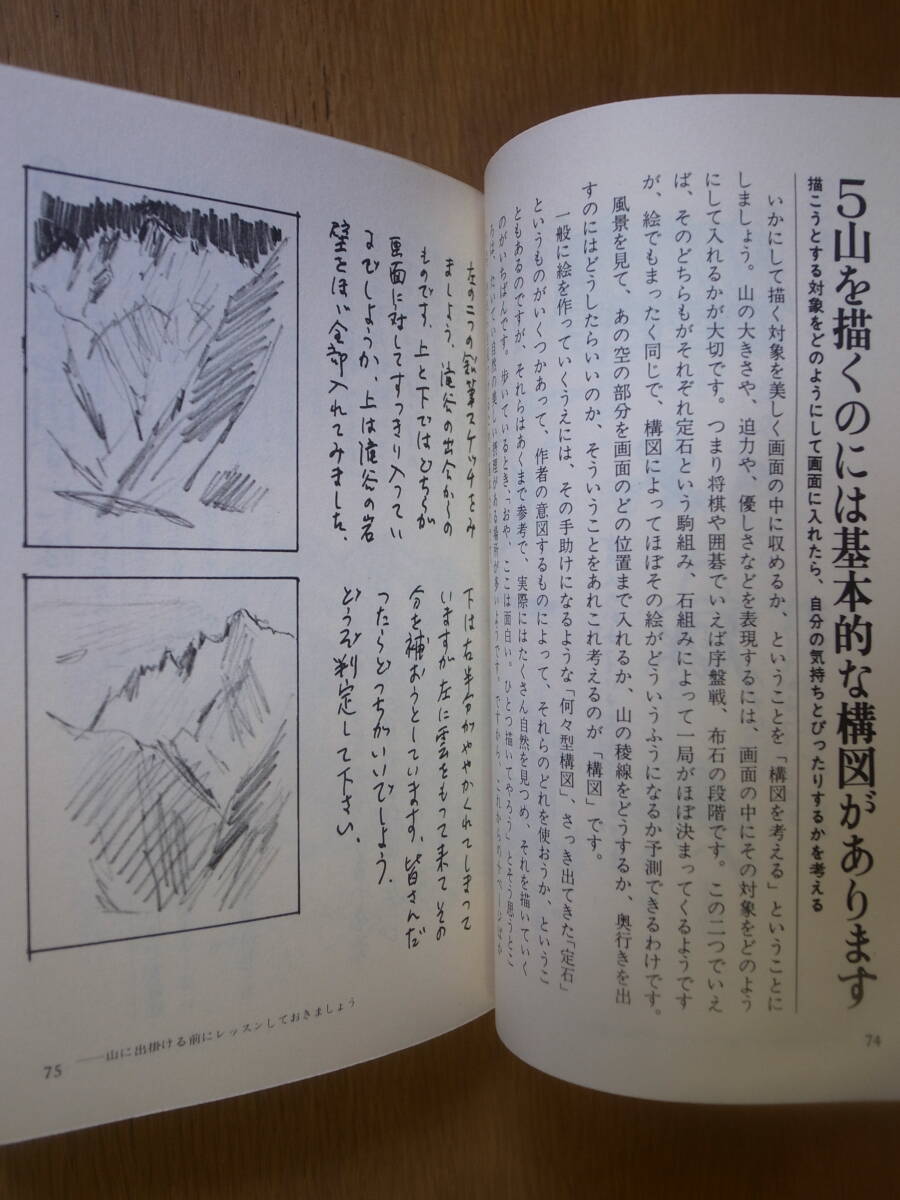 5山を描くのには基本的な構図があります
描こうとする対象をどのようにして画面に入れたら、自分の気持ちとぴったりするかを考える
いかにして描く対象を美しく画面の中に収めるか、ということを「構図を考える」ということに
しましょう。山の大きさや、迫力や、優しさなどを表現するには、画面の中にその対象をどのよう
にして入れるかが大切です。つまり将棋や囲碁でいえば序盤戦、布石の段階です。この二つでいえ
ば、そのどちらもがそれぞれ定石という駒組み、石組みによって一局がほぼ決まってくるようです
が、絵でもまったく同じで、構図によってほぼその絵がどういうふうになるか予測できるわけです。
風景を見て、あの空の部分を画面のどの位置まで入れるか、山の稜線をどうするか、奥行きを出
すのにはどうしたらいいのか、そういうことをあれこれ考えるのが「構図」です。
一般に絵を作っていくうえには、その手助けになるような「何々型構図」、さっき出てきた「定石」
というものがいくつかあって、作者の意図するものによって、それらのどれを使おうか、というこ
ともあるのですが、それらはあくまで参考で、実際にはたくさん自然を見つめ、それを描いていく
のがいちばんです。歩いているとき、「おや、ここは面白い。ひとつ描いてやろう」とそう思うとこ
74
左の二つの鉛筆スケッチをみ
ましょう。滝谷の出合からの
ものです。上と下ではどちらが
画面に対してすっきり入ってい
るでしょうか、上は滝谷の岩
壁をほぼ全部入れてみました。
下は右半分がややかくれてしまって
いますが左に雲をもって来てその
分を補おうとしています。皆さんだ
ったらどっちがいいでしょう。
どうぞ判定して下さい。
75 ──山に出掛ける前にレッスンしておきましょう